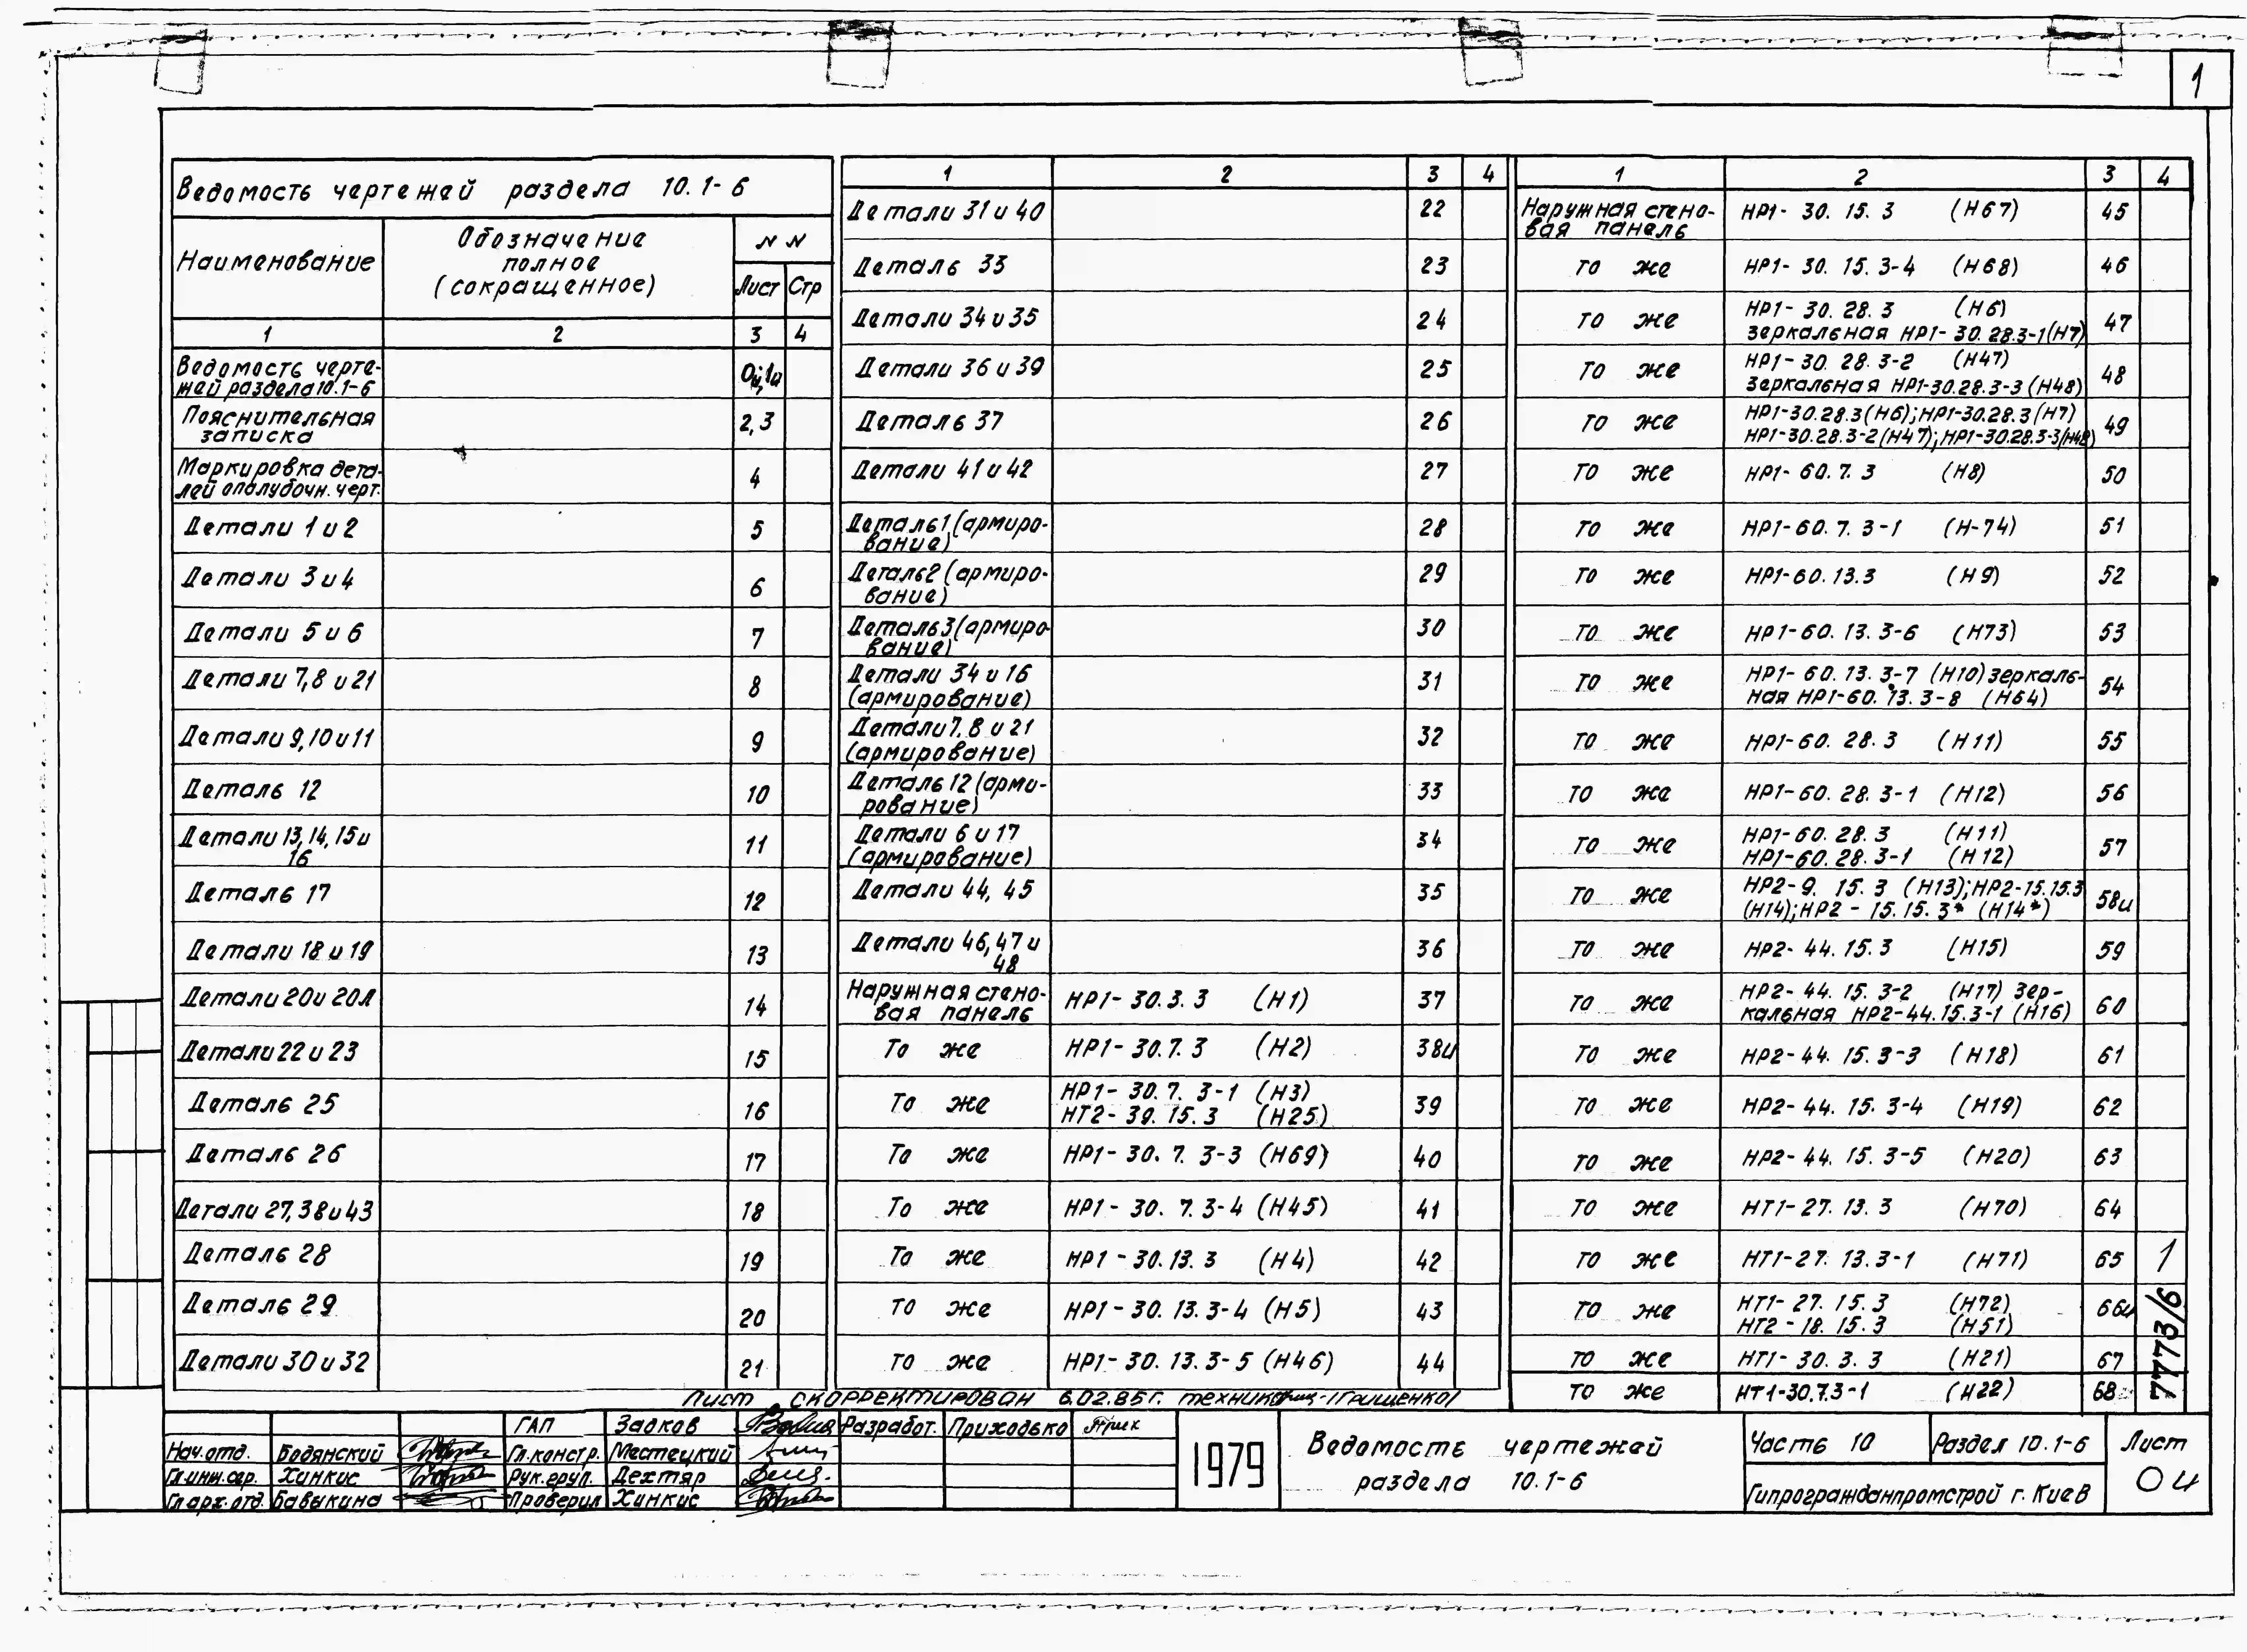 1
Ведомость чертежей раздела 10.1-6
Наименование
Обозначение
полное
(сокращенное)
NN
Лист
Стр
1 2 3 4
Ведомость черте-
жей раздела 10.1-6
Пояснительная 2,3
записка
Маркировка дета- 4
лей опалубочн. черт.
Детали 1 и 2 5
Детали 3 и 4 6
Детали 5 и 6 7
Детали 7,8 и 21 8
Детали 9,10 и 11 9
Деталь 12 10
Детали 13,14,15 и 11
16
Деталь 17 12
Детали 18 и 19 13
Детали 20 и 20Л 14
Детали 22 и 23 15
Деталь 25 16
Деталь 26 17
Детали 27,38 и 43 18
Деталь 28 19
Деталь 29 20
Детали 30 и 32 21
1 2 3 4
Детали 31 и 40 22
Деталь 33 23
Детали 34 и 35 24
Детали 36 и 39 25
Деталь 37 26
Детали 41 и 42 27
Деталь 1 (армиро- 28
вание)
Деталь 2 (армиро- 29
вание)
Деталь 3 (армиро- 30
вание)
Детали 34 и 16 31
(армирование)
Детали 7, 8 и 21 32
(армирование)
Деталь 12 (арми- 33
рование)
Детали 6 и 17 34
(армирование)
Детали 44, 45 35
Детали 46,47 и 36
48
Наружная стено- НР1-30.3.3 (Н1) 37
вая панель
То же НР1-30.7.3 (Н2) 38и
То же НР1-30.7.3-1 (Н3) 39
НТ2-39.15.3 (Н25)
То же НР1-30.7.3-3 (Н69) 40
То же НР1-30.7.3-4 (Н45) 41
То же НР1-30.13.3 (Н4) 42
То же НР1-30.13.3-4 (Н5) 43
То же НР1-30.13.3-5 (Н46) 44
1 2 3 4
Наружная стено- НР1-30.15.3 (Н67) 45
вая панель
То же НР1-30.15.3-4 (Н68) 46
То же НР1-30.28.3 (Н6) 47
зеркальная НР1-30.28.3-1(Н7)
То же НР1-30.28.3-2 (Н47) 48
Зеркальная НР1-30.28.3-3 (Н48)
То же НР1-30.28.3(Н6);НР1-30.28.3(Н7) 49
НР1-30.28.3-2(Н47);НР1-30.28.3-3(Н48)
То же НР1-60.7.3 (Н8) 50
То же НР1-60.7.3-1 (Н-74) 51
То же НР1-60.13.3 (Н9) 52
То же НР1-60.13.3-6 (Н73) 53
То же НР1-60.13.3-7 (Н10) зеркаль- 54
ная НР1-60.13.3-8 (Н64)
То же НР1-60.28.3 (Н11) 55
То же НР1-60.28.3-1 (Н12) 56
То же НР1-60.28.3 (Н11) 57
НР1-60.28.3-1 (Н12)
То же НР2-9.15.3 (Н13);НР2-15.15.3 58и
(Н14);НР2-15.15.3* (Н14*)
То же НР2-44.15.3 (Н15) 59
То же НР2-44.15.3-2 (Н17) Зер- 60
кальная НР2-44.15.3-1 (Н16)
То же НР2-44.15.3-3 (Н18) 61
То же НР2-44.15.3-4 (Н19) 62
То же НР2-44.15.3-5 (Н20) 63
То же НТ1-27.13.3 (Н70) 64
То же НТ1-27.13.3-1 (Н71) 65
То же НТ1-27.15.3 (Н72) 66и
НТ2-18.15.3 (Н51)
То же НТ1-30.3.3 (Н21) 67
То же НТ1-30.7.3-1 (Н22) 68
1
7773/6
Лист скорректирован 6.02.85г. техник /Грищенко/
ГАП Задков Разработ. Приходько
Нач.отд. Бодянский Гл.констр. Местецкий
Гл.инж.сер. Хинкис Рук.груп. Дехтяр
Гл.арх.отд. Бавыкина Проверил Хинкис
1979
Ведомость чертежей
раздела 10.1-6
Часть 10
Раздел 10.1-6
Гипрогражданпромстрой г. Киев
Лист
0и